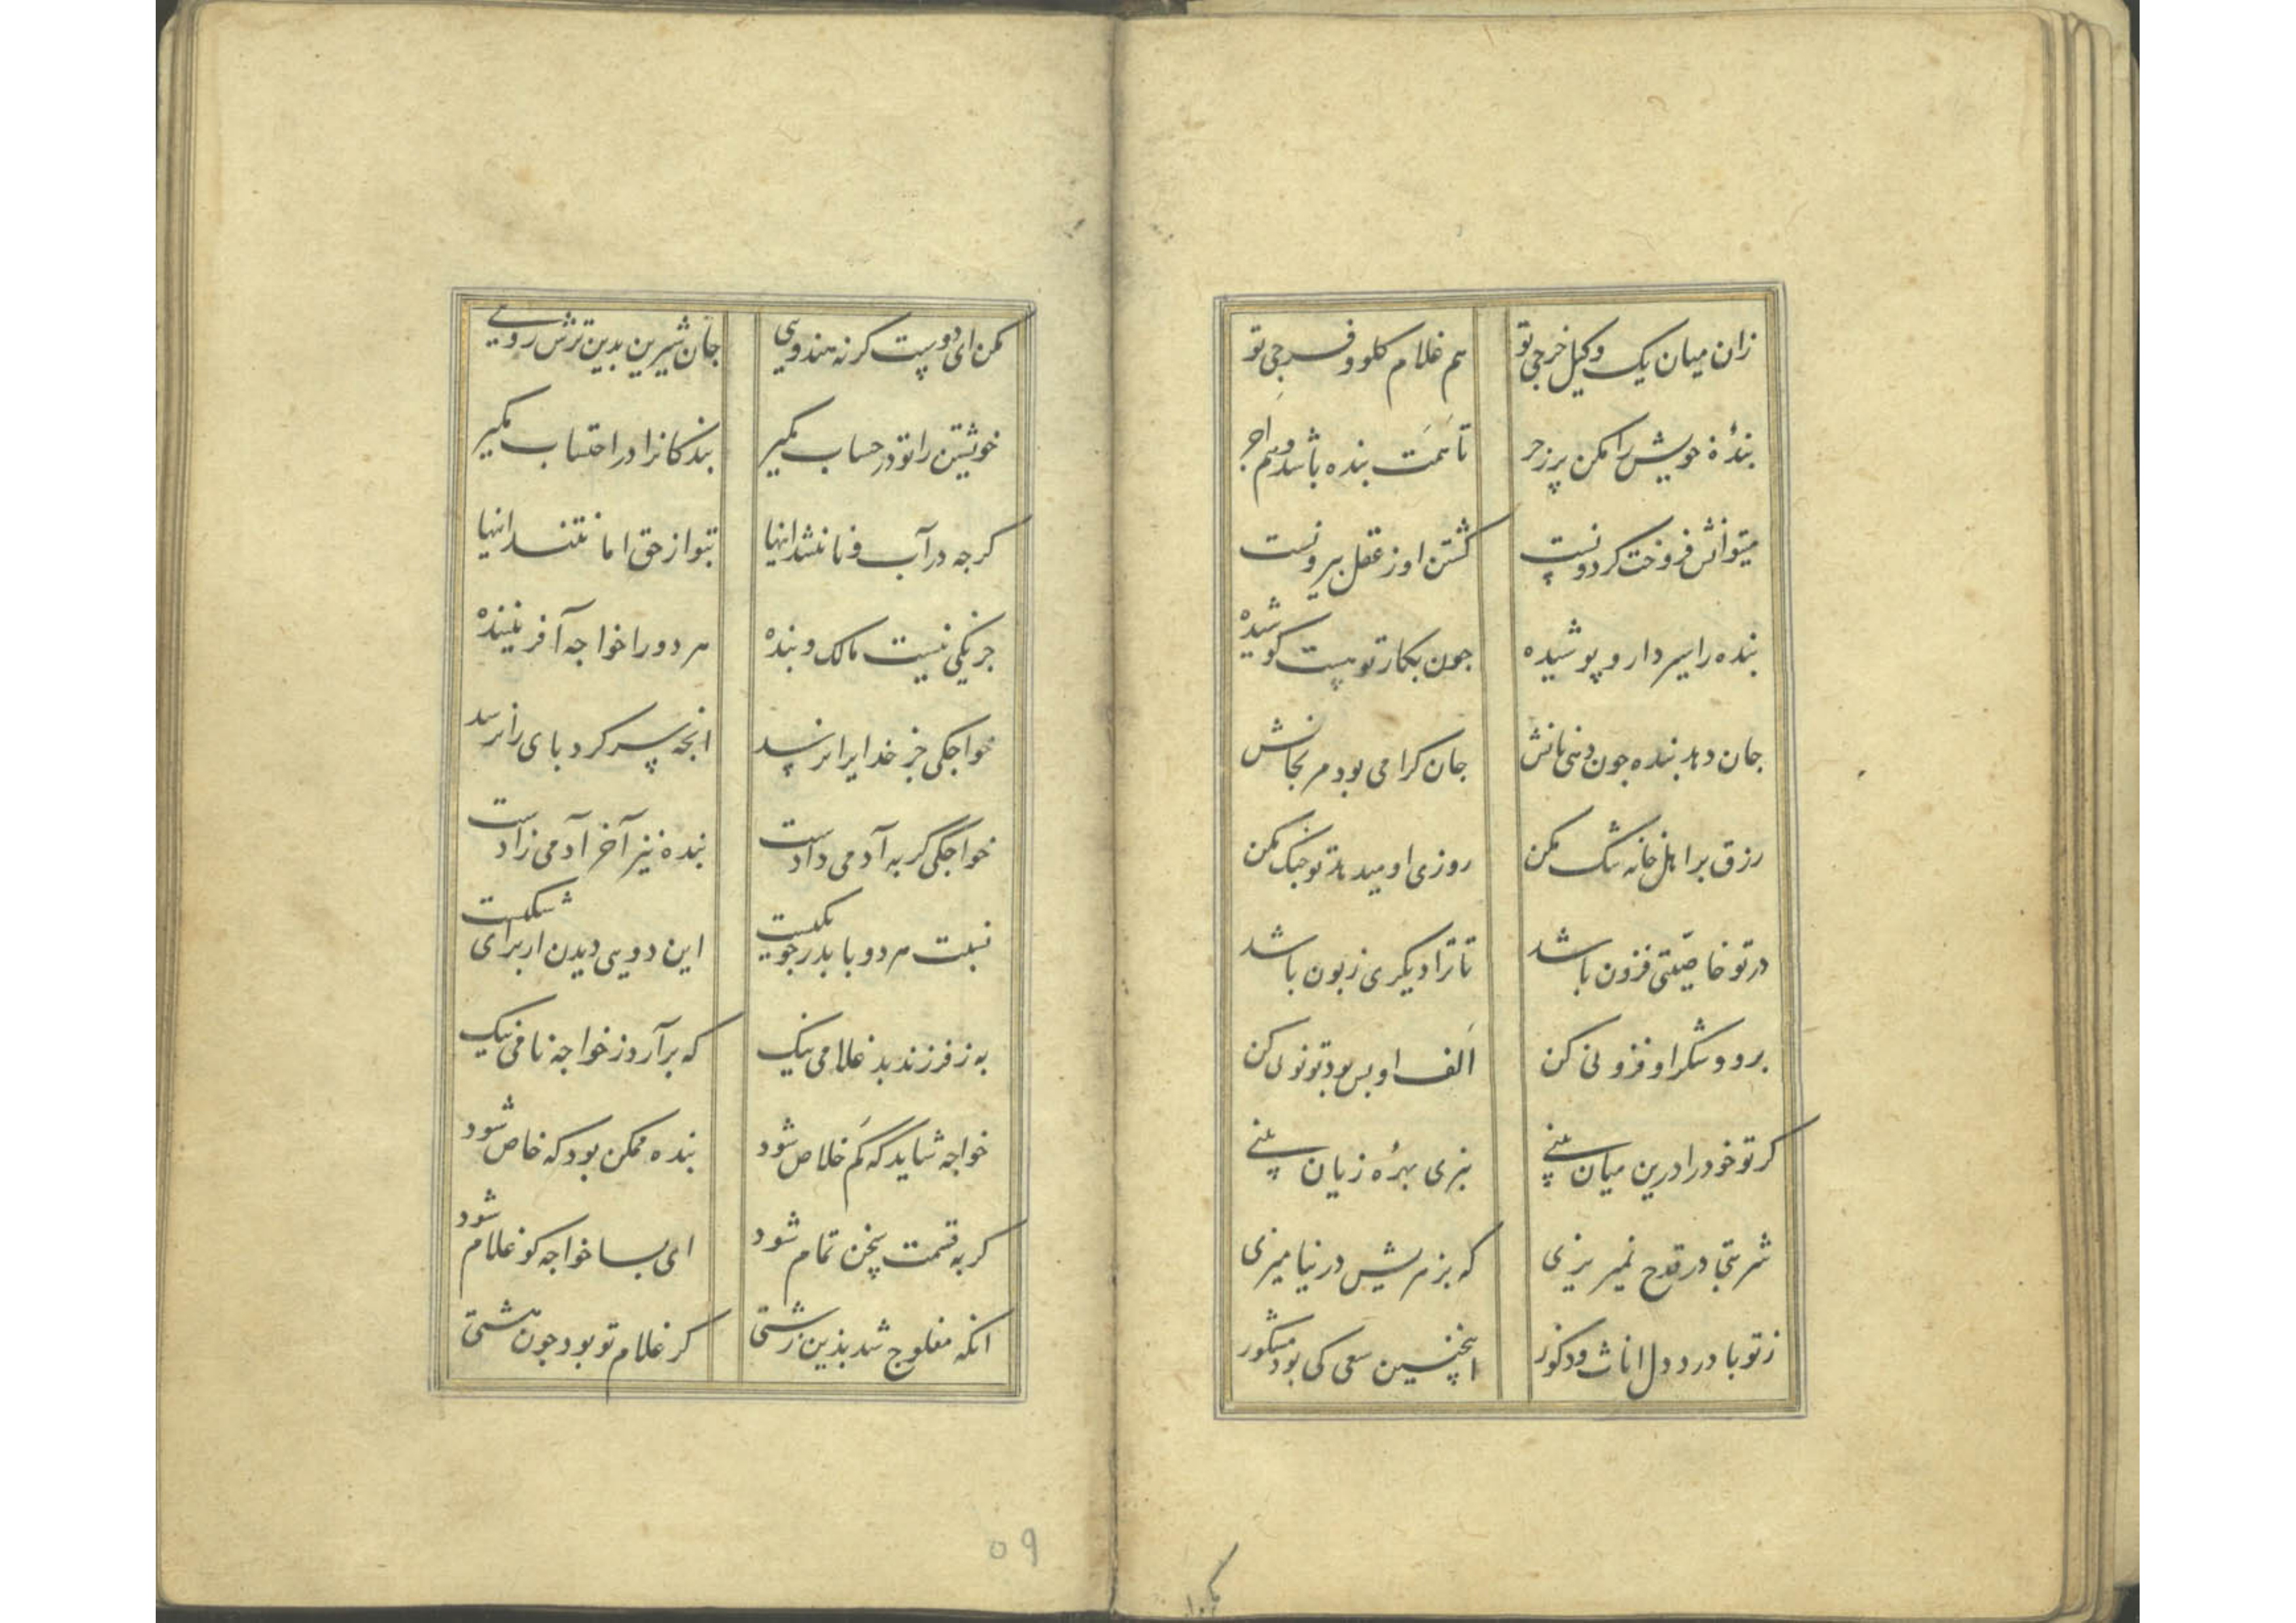 زان میان یک وکیل خرجی تو هم غلام کلو و فرجی تو
بندهٔ خویش را مکن پر زجر تا تمت بنده باشد و هم اجر
میتوانش فروخت گر دونست کشتن او ز عقل بیرونست
بنده را سیر دار و پوشیده جون بکار تو هست کوشیده
جان دهد بنده جون دهی نانش جان کرامی بود مرنجانش
رزق بر اهل خانه تنک مکن روزی او میدهد تو جنک مکن
در تو خاصیتی فزون باشد تا ترا دیکری زبون باشد
برو و شکر او فزونی کن الف او بس بود تو نونی کن
کر تو خود را درین میان بینی نبری بهرهٔ زیان بینی
شربتی در قدح نمیریزی که بزهریش در نیامیزی
ز تو با درد دل اناث و ذکور اینچنین سعی کی بود مشکور
مکن ای دوست کر نه هندویی جان شیرین بدین ترش رویی
خویشتن را تو در حساب مکیر بندکانرا در احتساب مکیر
کرجه در آب و نانشند اینها بتو از حق امانتند اینها
جز یکی نیست مالک و بنده هر دو را خواجه آفریننده
خواجکی جز خدایرا نرسد انجه پسر کرد بای را نرسد
خواجکی گر به آدمی دادست بنده نیز آخر آدمی زادست
نسبت هر دو با بدر جو یکیست این دویی دیدن از برای شکیست
به ز فرزند بد غلامی نیک که برآرد ز خواجه نامی نیک
خواجه شاید گه کم خلاص شود بنده ممکن بود که خاص شود
کر به قسمت سخن تمام شود ای بسا خواجه کو غلام شود
انکه مفلوج شد بدین زشتی کر غلام تو بود جون هشتی
۵۹